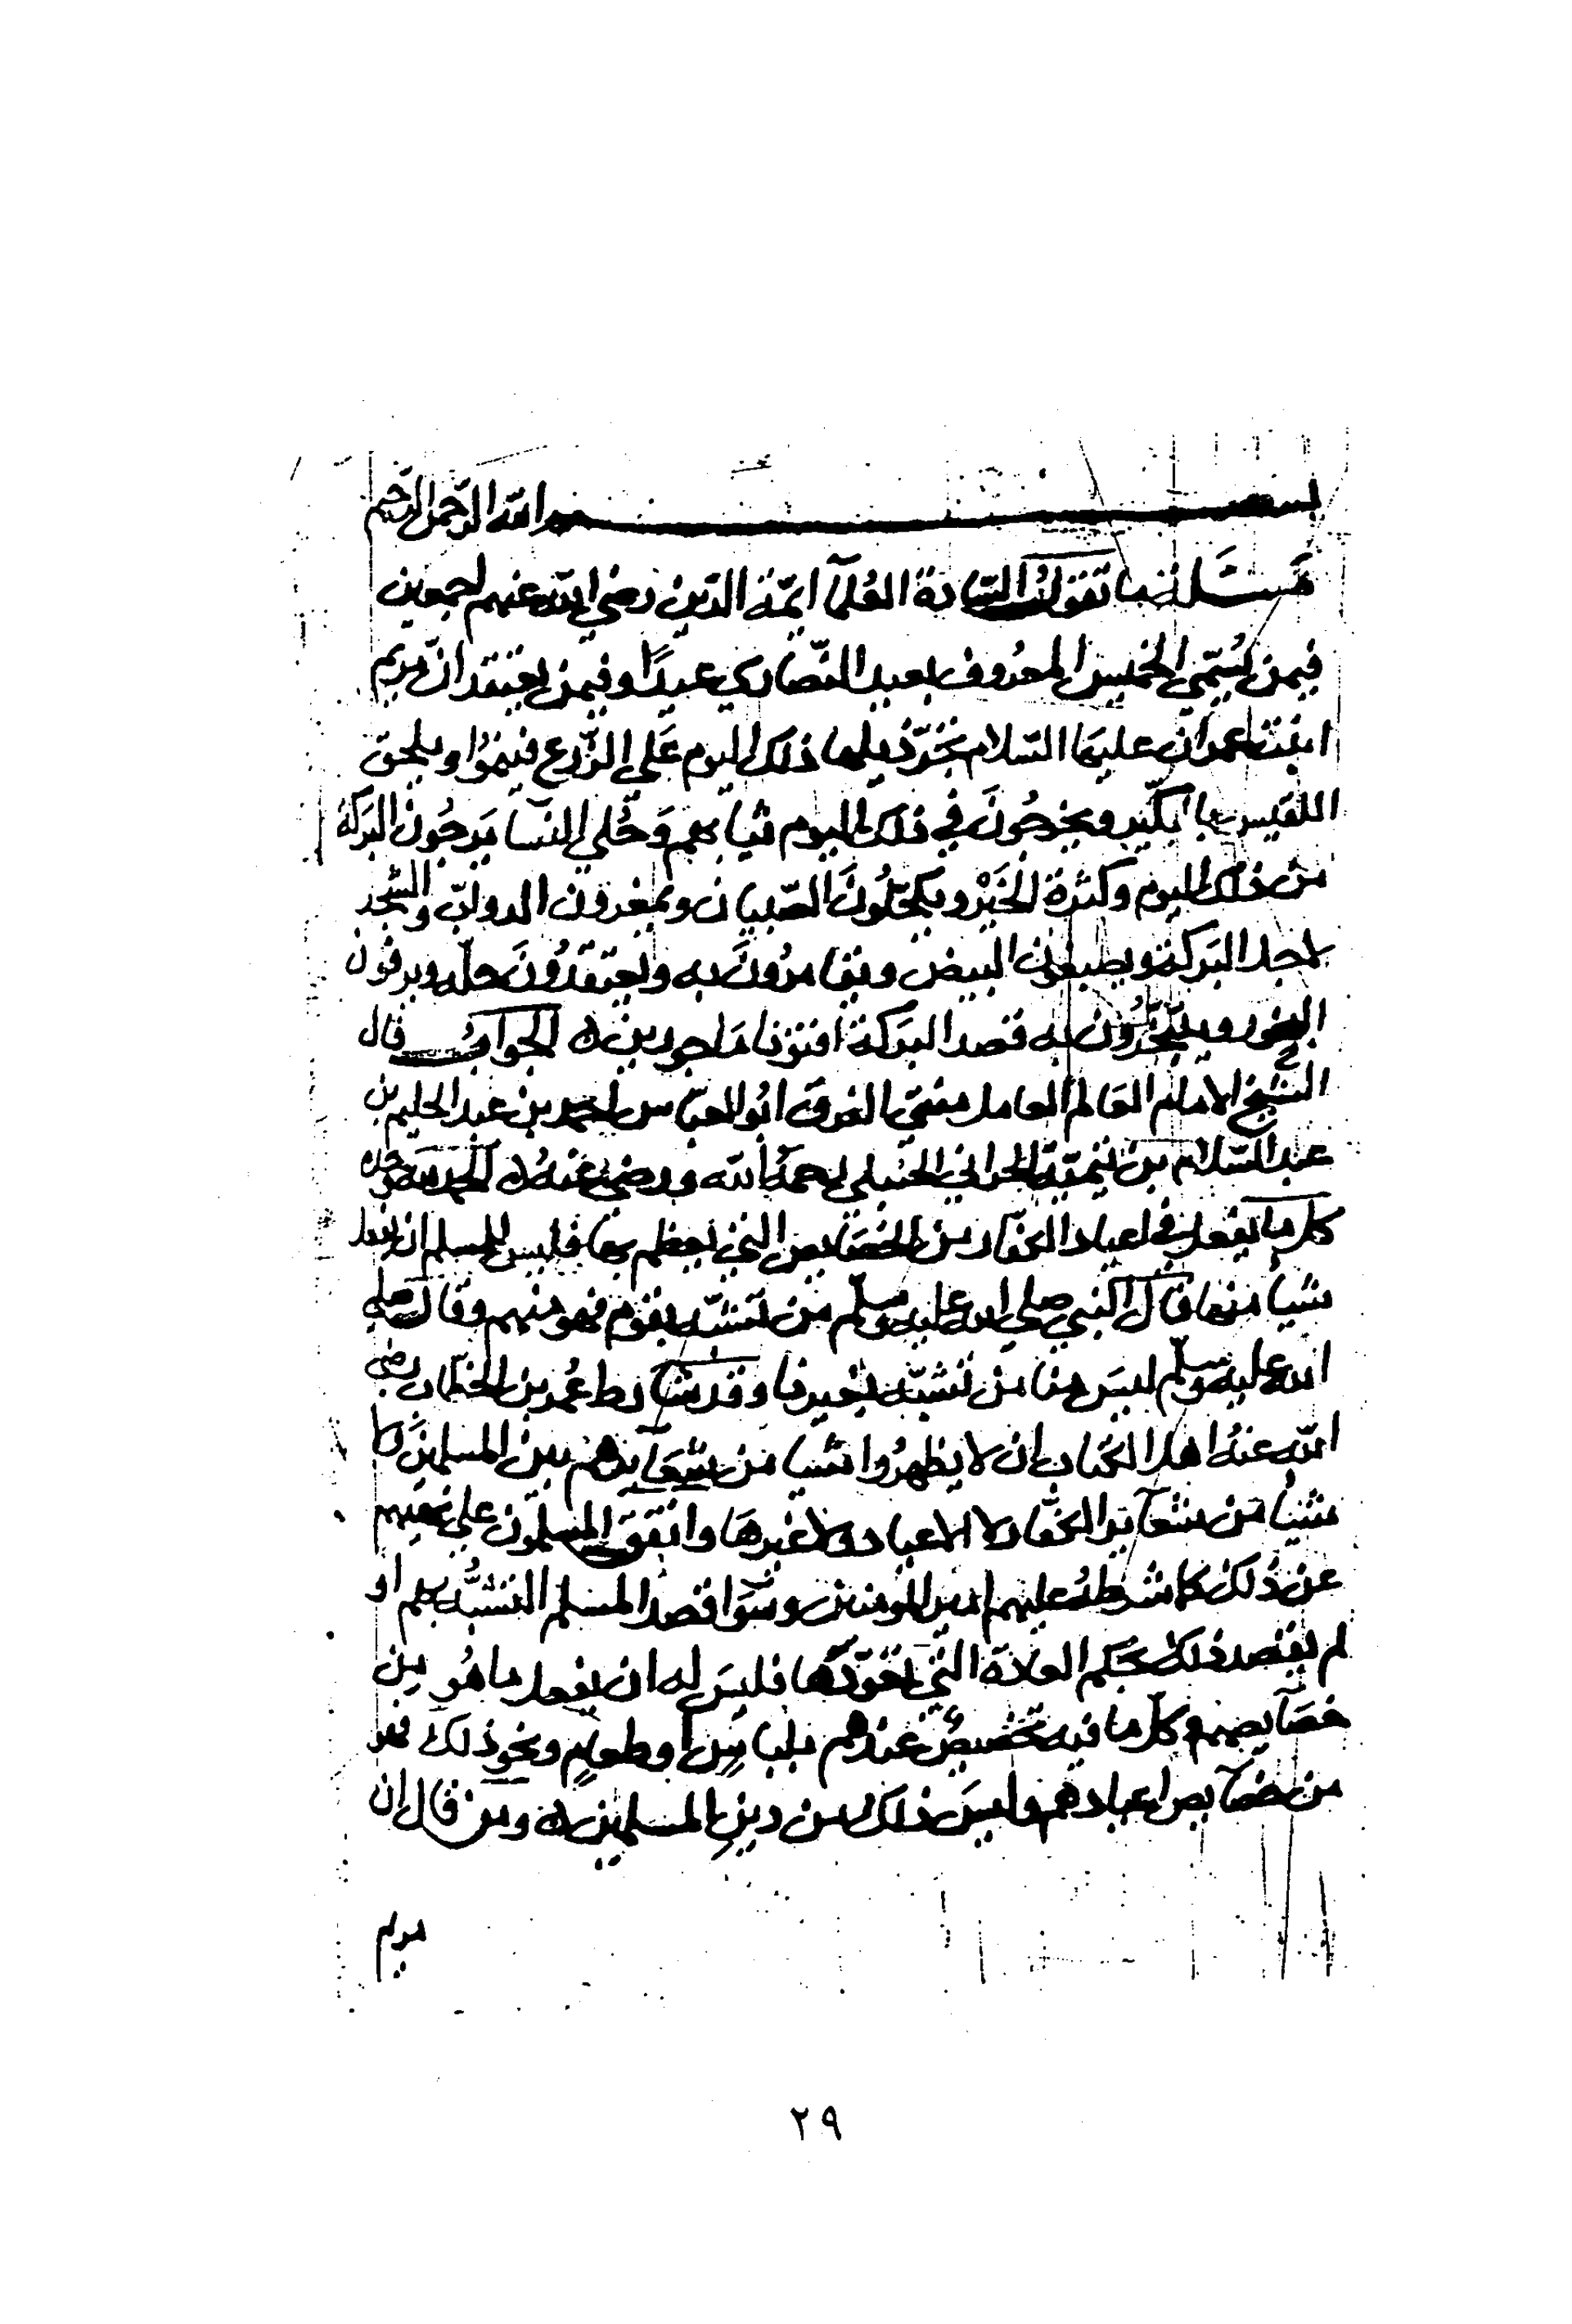 بسم الله الرحمن الرحيم
مسئلة ما تقول السّادة العُلمآ ايمّة الدّين رضي الله عنهم اجمعين
فيمن يُسَمّي الخميس المعرُوف بعيد النّصارى عيداً وفيمن يعتقد انّ مريم
ابنت عمران عليها السّلام تجرّ ذيلها ذلك اليوم عَلي الزّرع فينموُا ويلحق
اللقيس بالبكّير ويخرجُونَ في ذلك اليوم ثيابهم وَحُلي النّسا يَرجُون البَركة
من ذلك اليوم وكثرة الخَيْر ويكحّلُونَ الصّبيان ويمغرون الدوابّ والشجر
لاجل البَركة ويصبغون البيض ويتقامرُونَ به ويعتقدُونَ حلّه ويرقون
البخور ويتبخّرُون به قصد البَركة افتونا مَاجورين الجوابُ قال
الشيخ الامام العَالم العامل مفتي الفرق ابُو العبّاس احمد بن عبد الحليم بن
عبد السّلام بن تيميّة الحراني الحنبلي رحمهُ الله ورضي عنهُ الحمد لله وحده
كل ما يفعل في اعياد الكفّار من الخصَايص التي يعظم بها فليس للمسلم ان يفعل
شيأ منها قال النبي صلي الله عليه وسلّم من تشبّه بقوم فهو منهم وقال صلي
الله عليه وسلّم ليسَ منا من تشبّه بغيرنا وقد شارط عُمر بن الخطّاب رضي
الله عنهُ اهل الكتاب ان لا يظهرُوا شيا من شعَآيرهم بين المسلمين لا
شيئاً من شعآير الكفّار لا الاعياد ولا غيرهَا واتّفقَ المسلمُون علي نهيهم
عن ذلك كما شرطهُ عليهم امير المومنين وسَوا قصد المسلم التشبُّه بهم او
لم يقصد ذلك بحُكم العادة التي تعَوّدَها فليسَ له ان يفعل ما هُو مِن
خصَآيصهم وكلّ ما فيه تخصيصٌ عندهم بلباسٍ او طعامٍ ونحو ذلك فهو
من خصَآيص اعيادهم وليسَ ذلك من دينِ المسلمين ومن قال ان
مريم
٢٩